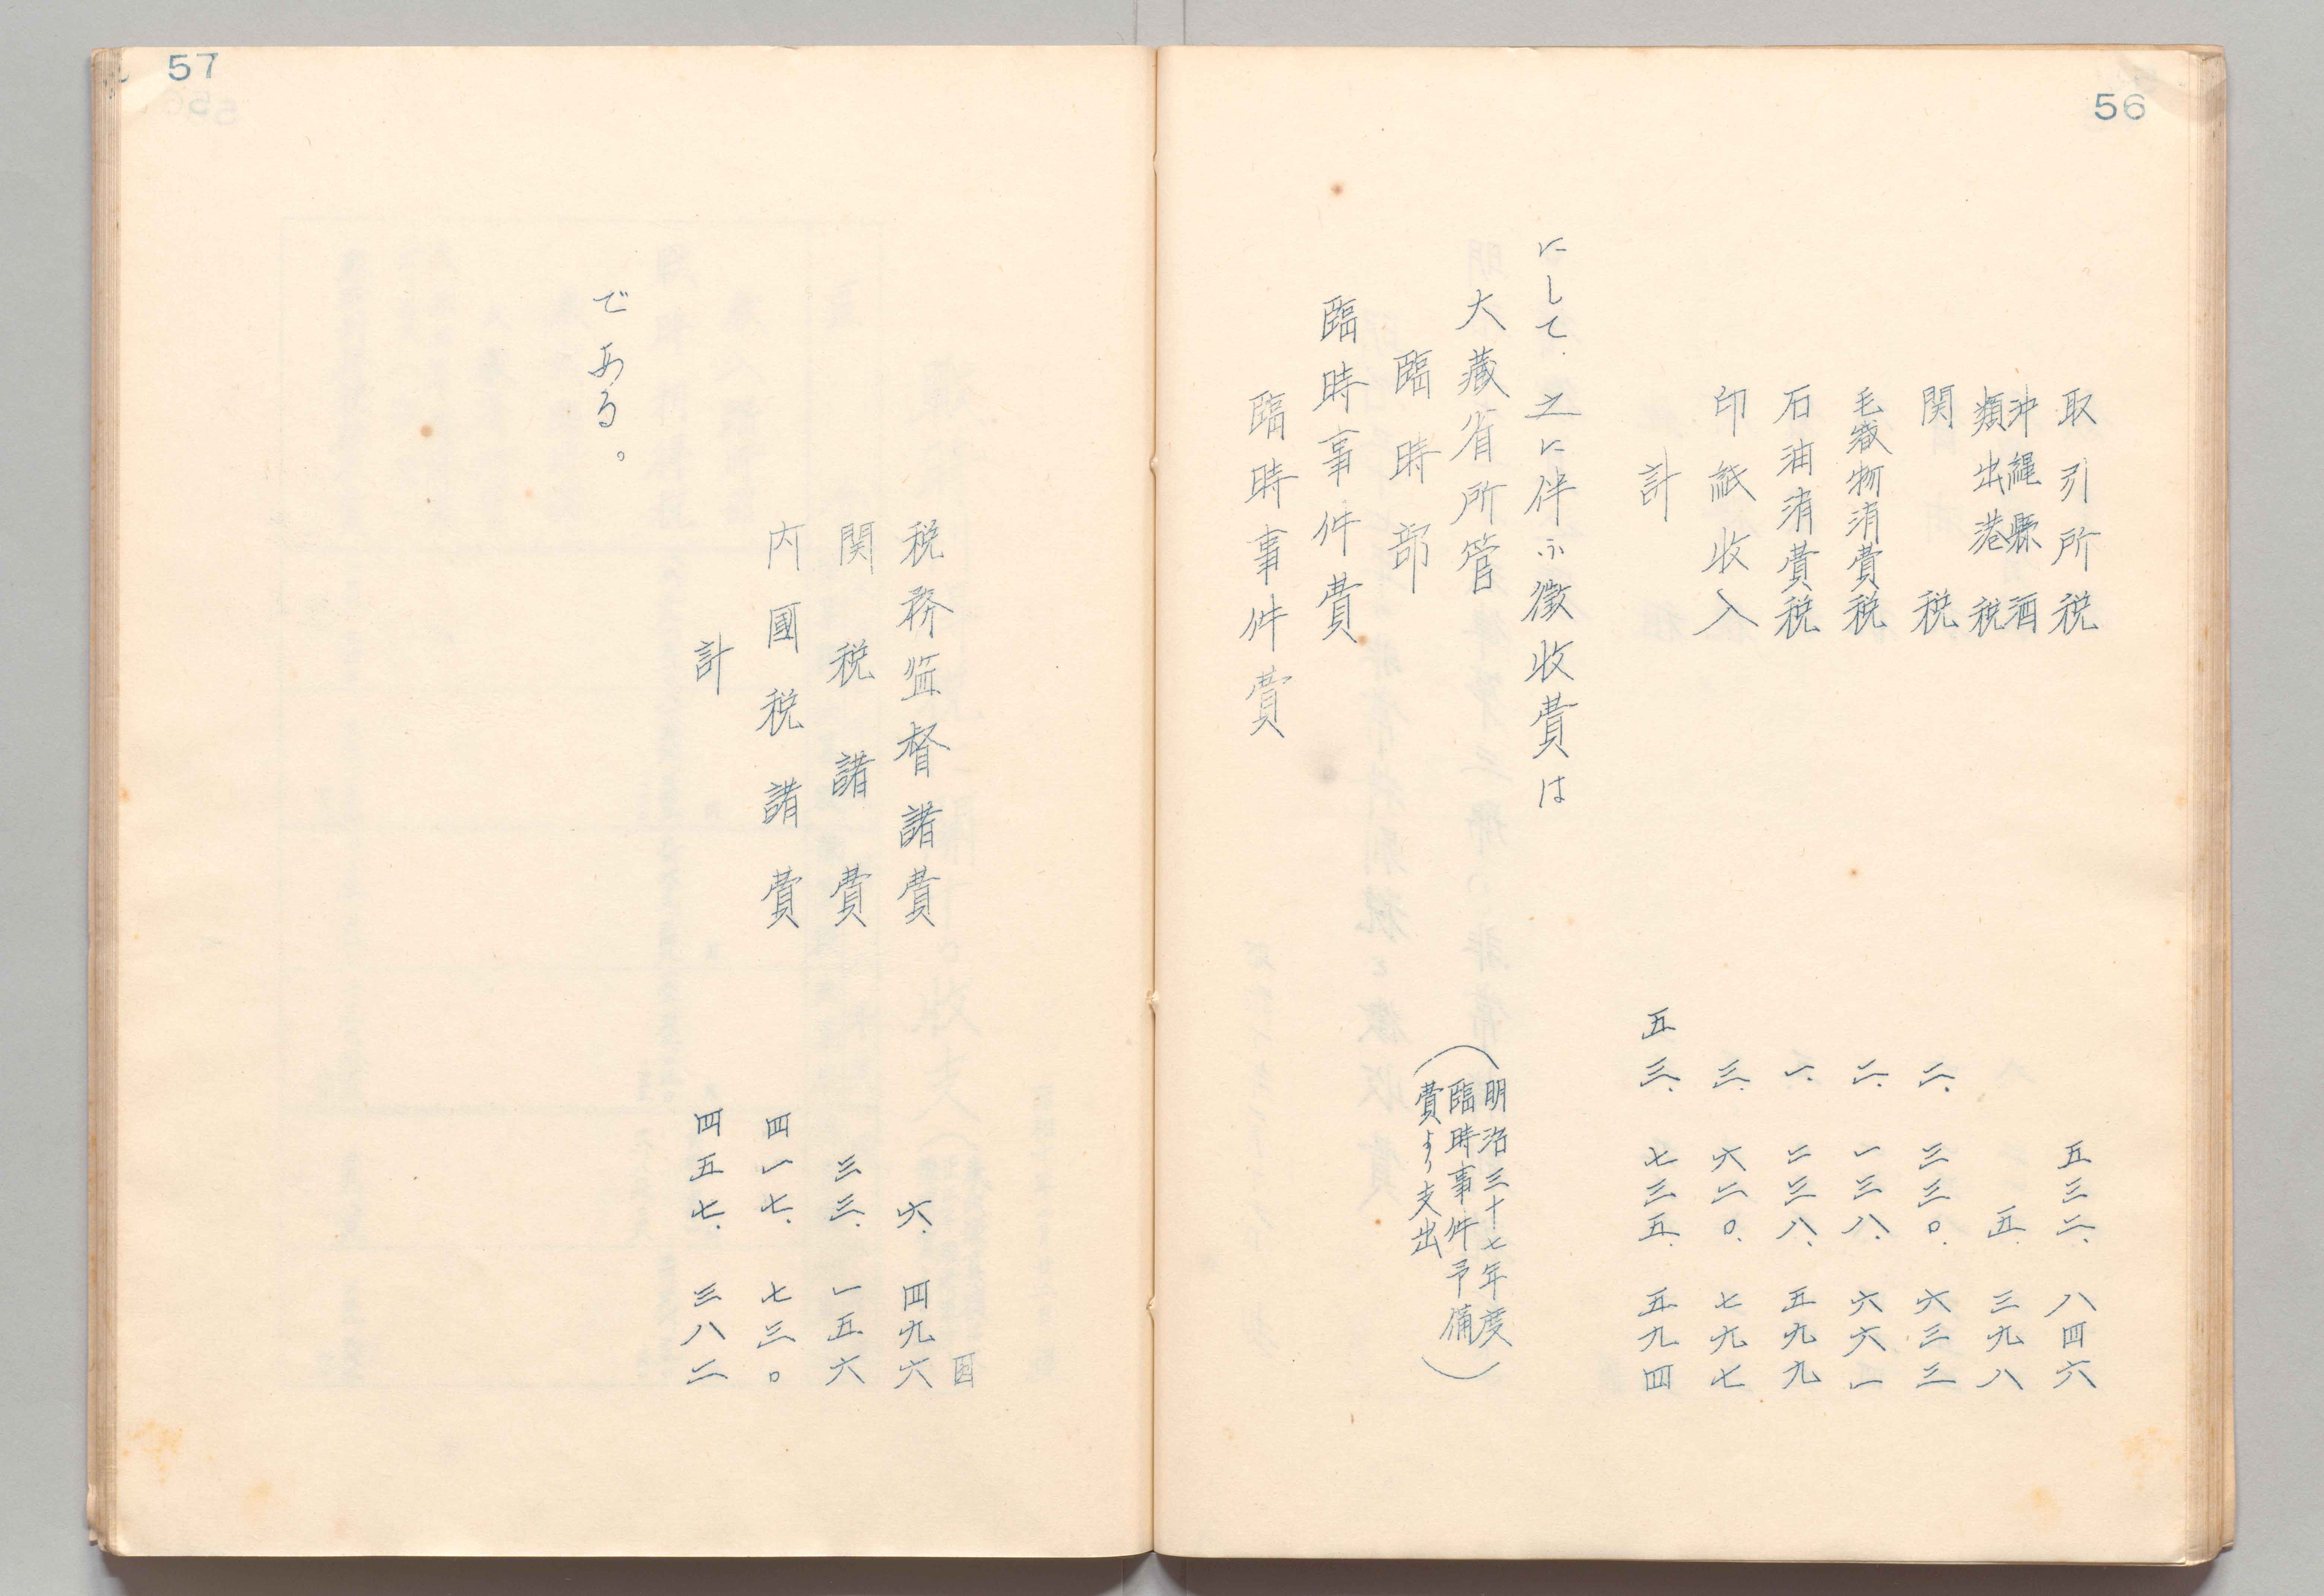 56
取引所税 五三二、八四六
沖縄縣酒
類出港税 五、三九八
関税 二、三三〇、六三三
毛織物消費税 二、一三八、六六一
石油消費税 一、二三八、五九九
印紙收入 三、六二〇、七九七
計 五三、七三五、五九四
にして、之に伴ふ徴收費は
大藏省所管
(明治三十七年度
臨時事件予備
費より支出)
臨時部
臨時事件費
臨時事件費
57
円
税務監督諸費 六、四九六
関税諸費 三三、一五六
内國税諸費 四一七、七三〇
計 四五七、三八二
である。